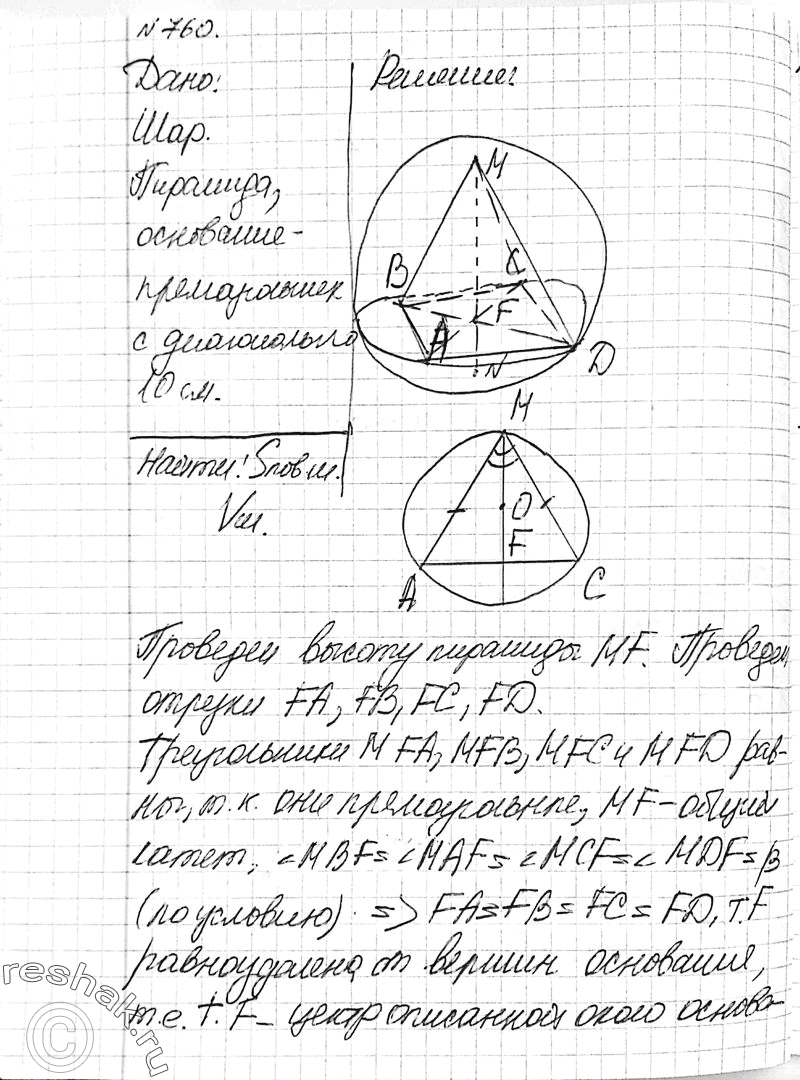 №760.
Дано:
Решение:
Шар.
Пирамида,
основание-
прямоугольник
с диагональю
10 см.
Найти: Sповш.
Vш.
M
B
C
F
A
N
D
M
O
F
A
C
Проведем высоту пирамиды MF. Проведем
отрезки FA, FB, FC, FD.
Треугольники MFA, MFB, MFC и MFD рав-
ны, т.к. они прямоугольные, MF-общий
катет, ∠MBF=∠MAF=∠MCF=∠MDF=β
(по условию) => FA=FB=FC=FD, т.F
равноудалена от вершин основания,
т.е. т.F- центр описанной около основа-
reshak.ru
©